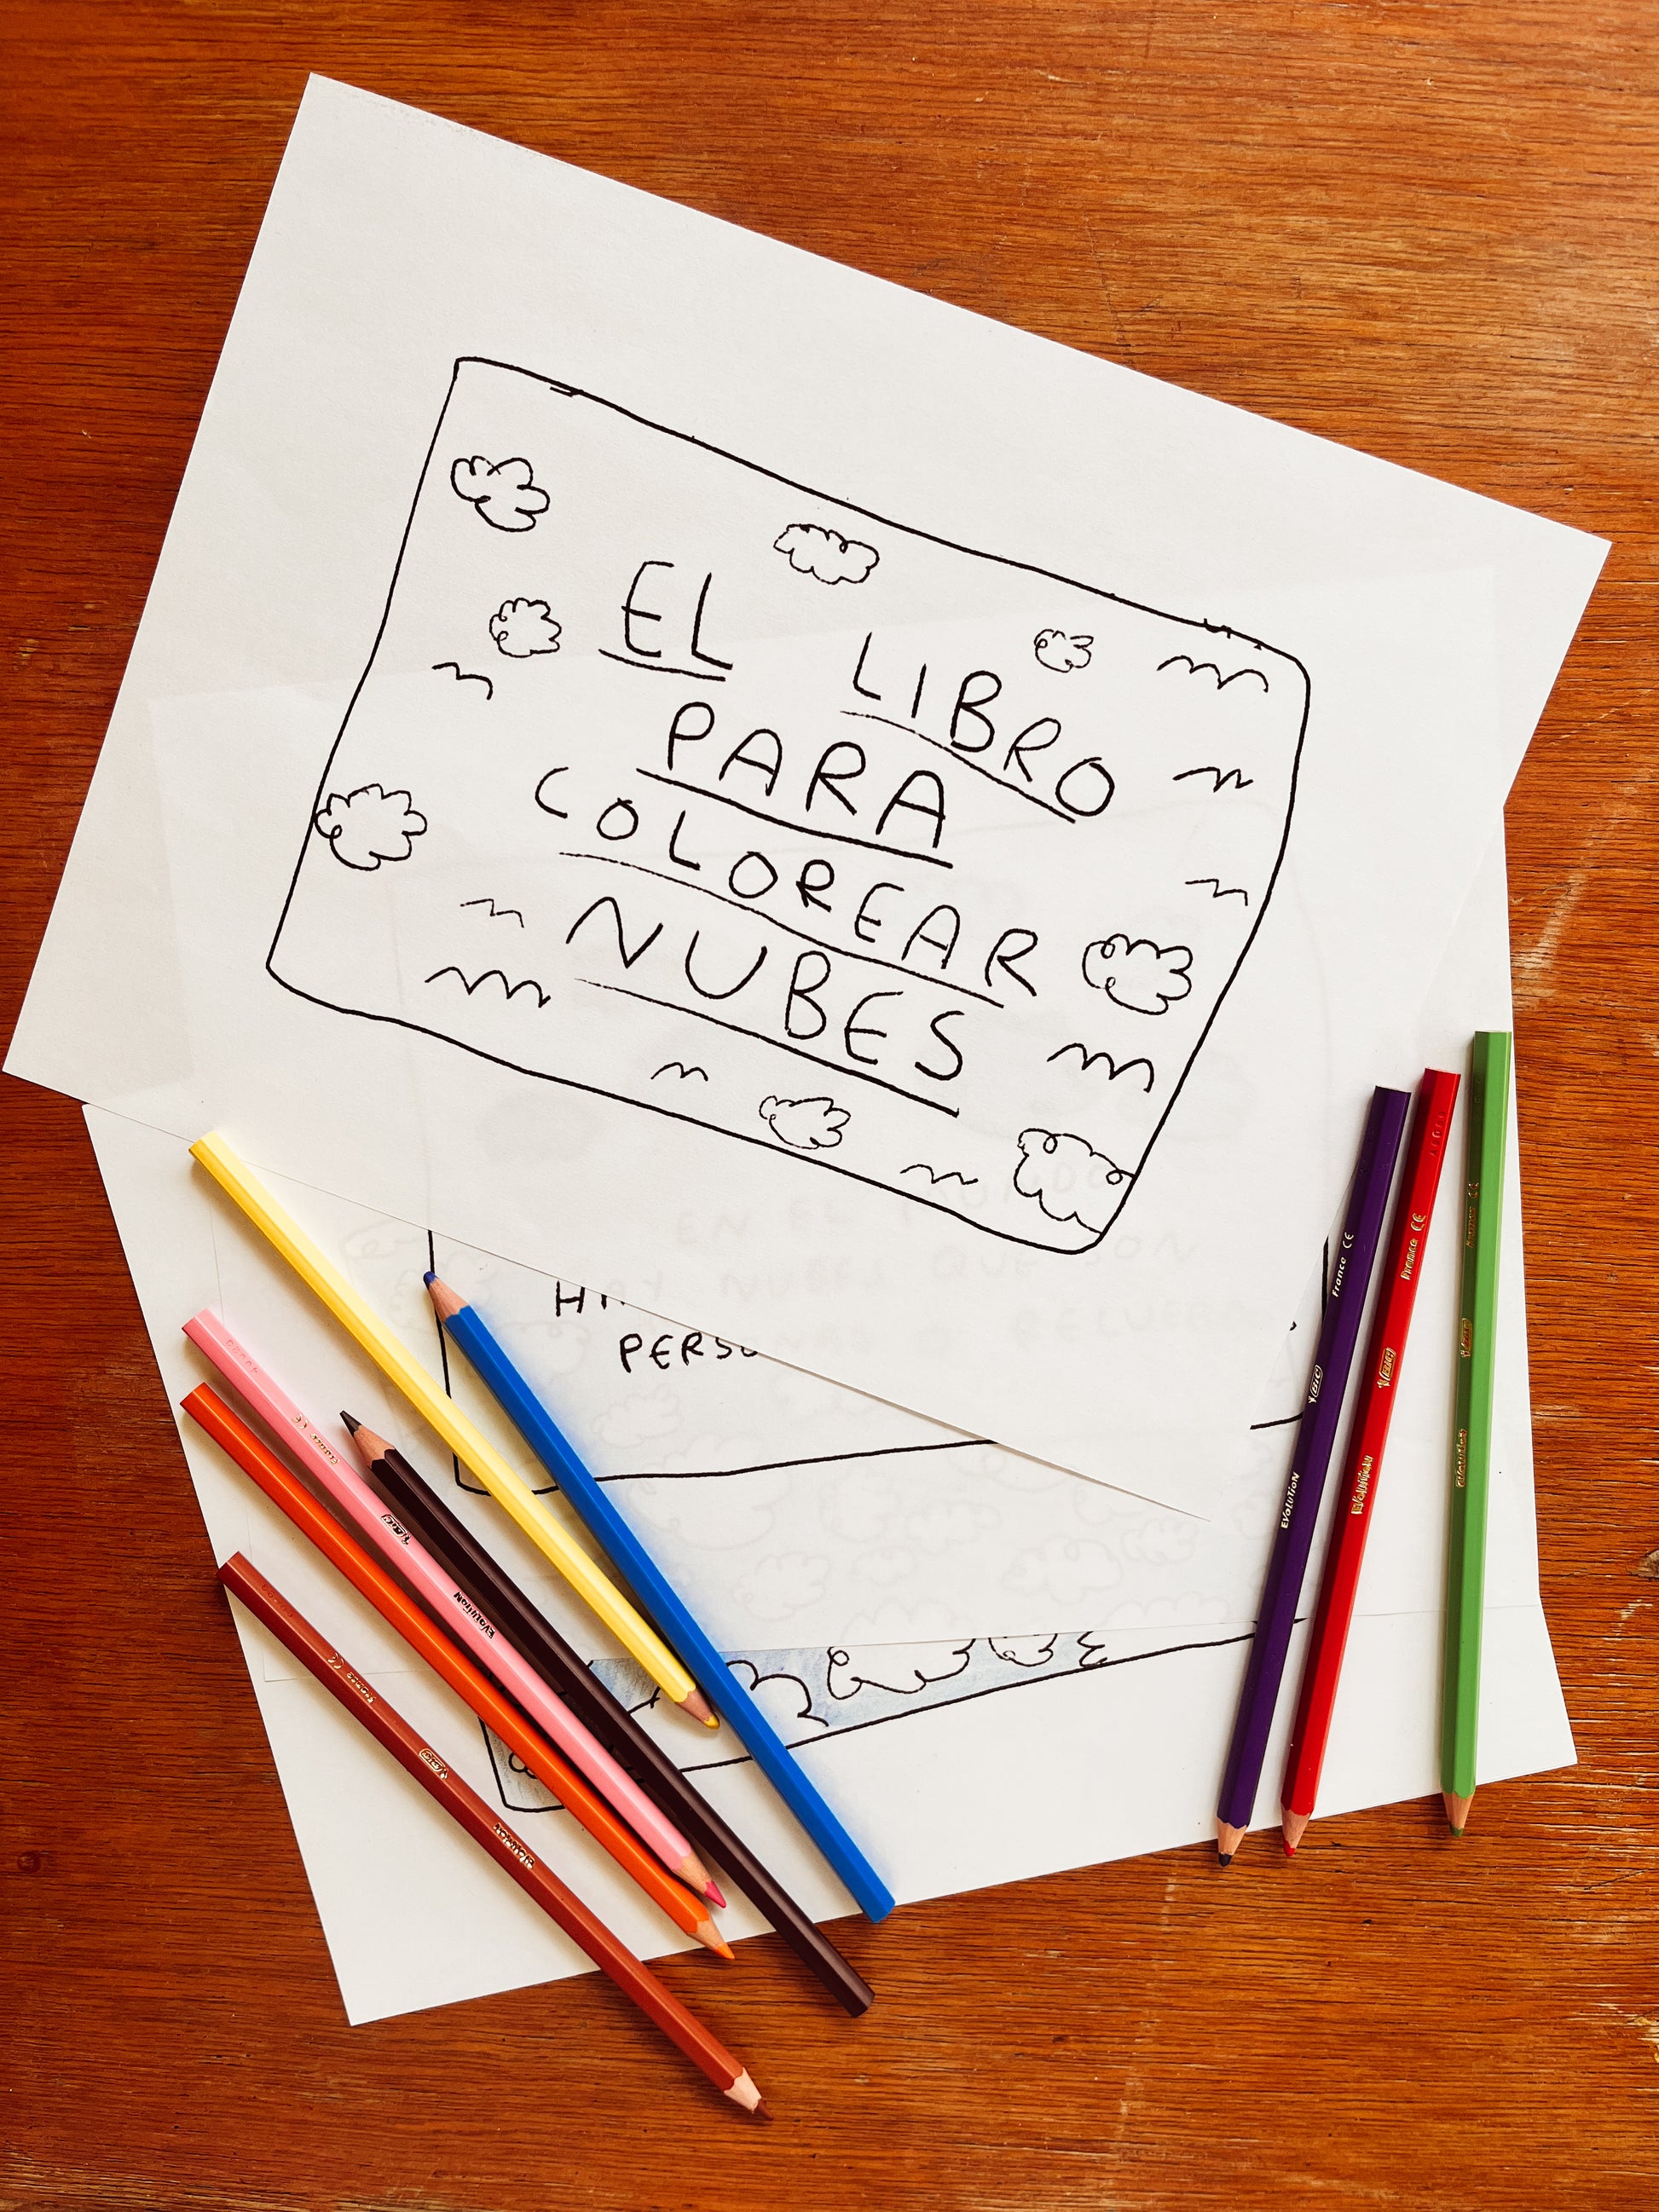 EL LIBRO
PARA
COLOREAR
NUBES
EN EL MUNDO
HAY NUBES QUE SON
PERSO
France CE
BIC
EVOLUTION
France CE
BIC
EVOLUTION
BIC
EVOLUTION
France CE
BIC
EVOLUTION
France CE
BIC
EVOLUTION